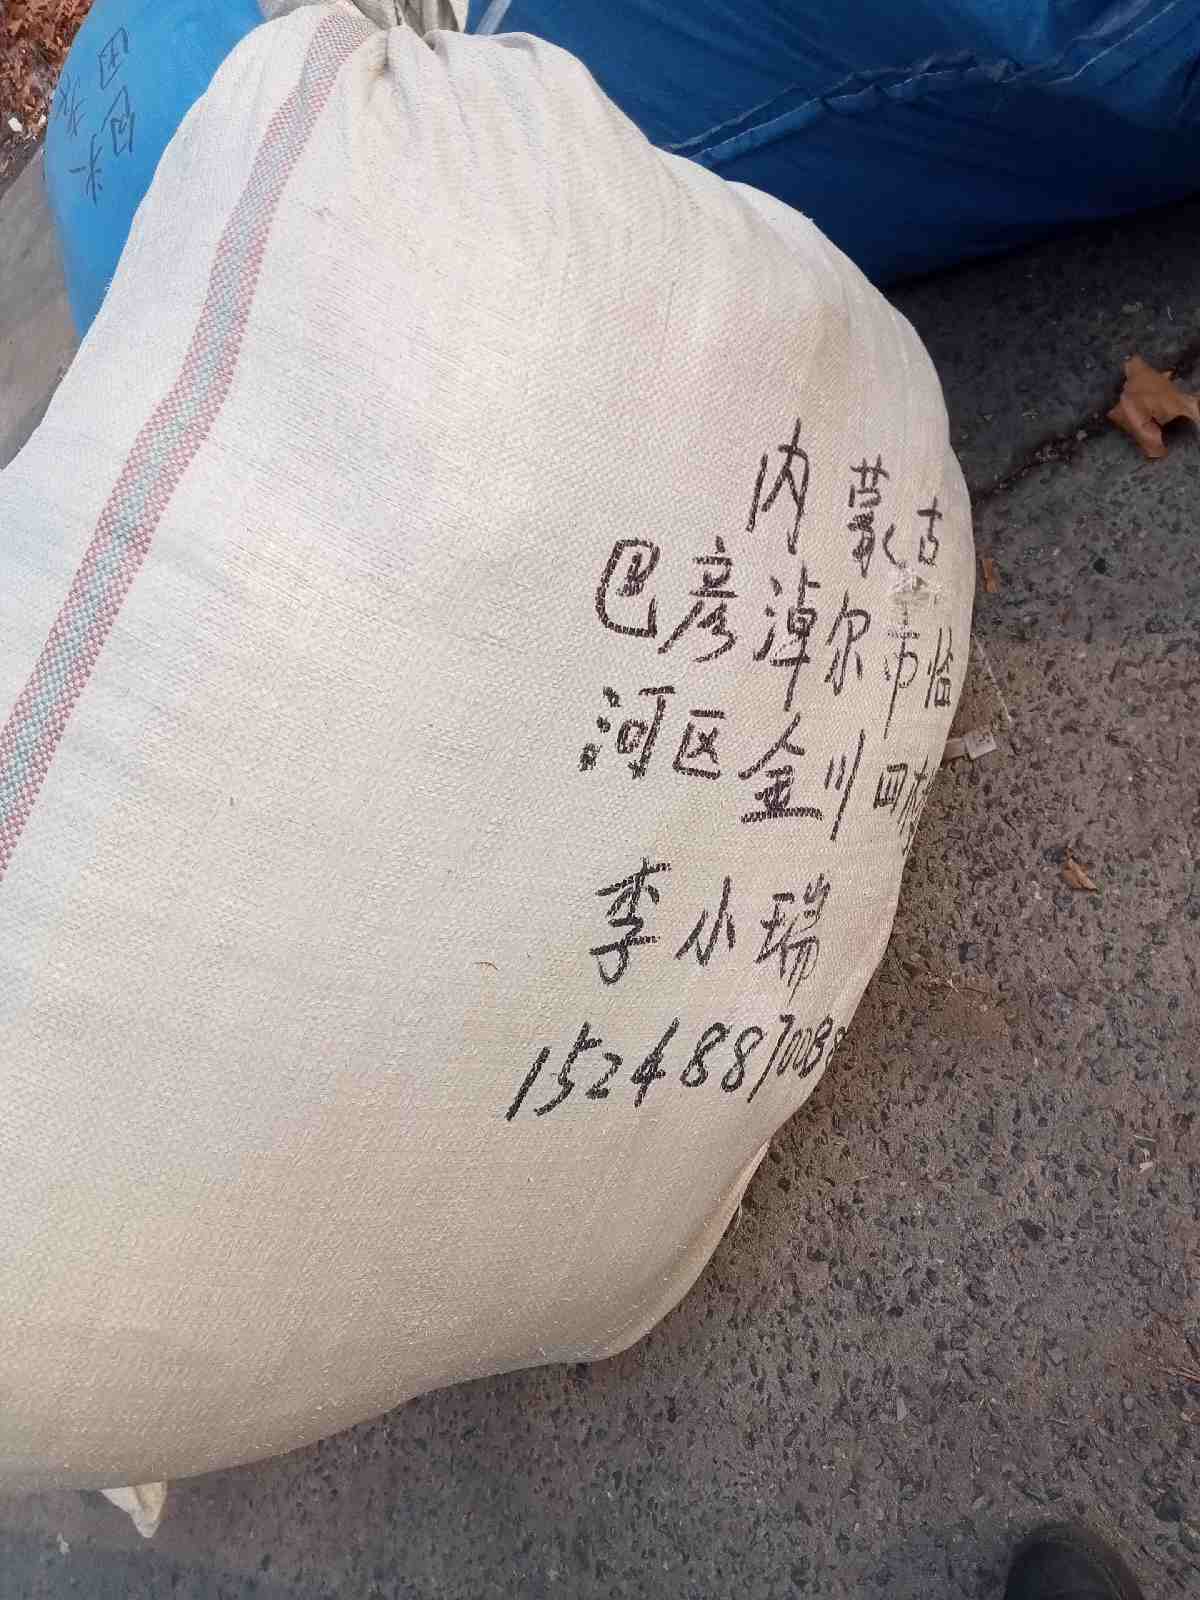 内蒙古
巴彦淖尔市临
河区金川四
李小瑞
15248870088
包头